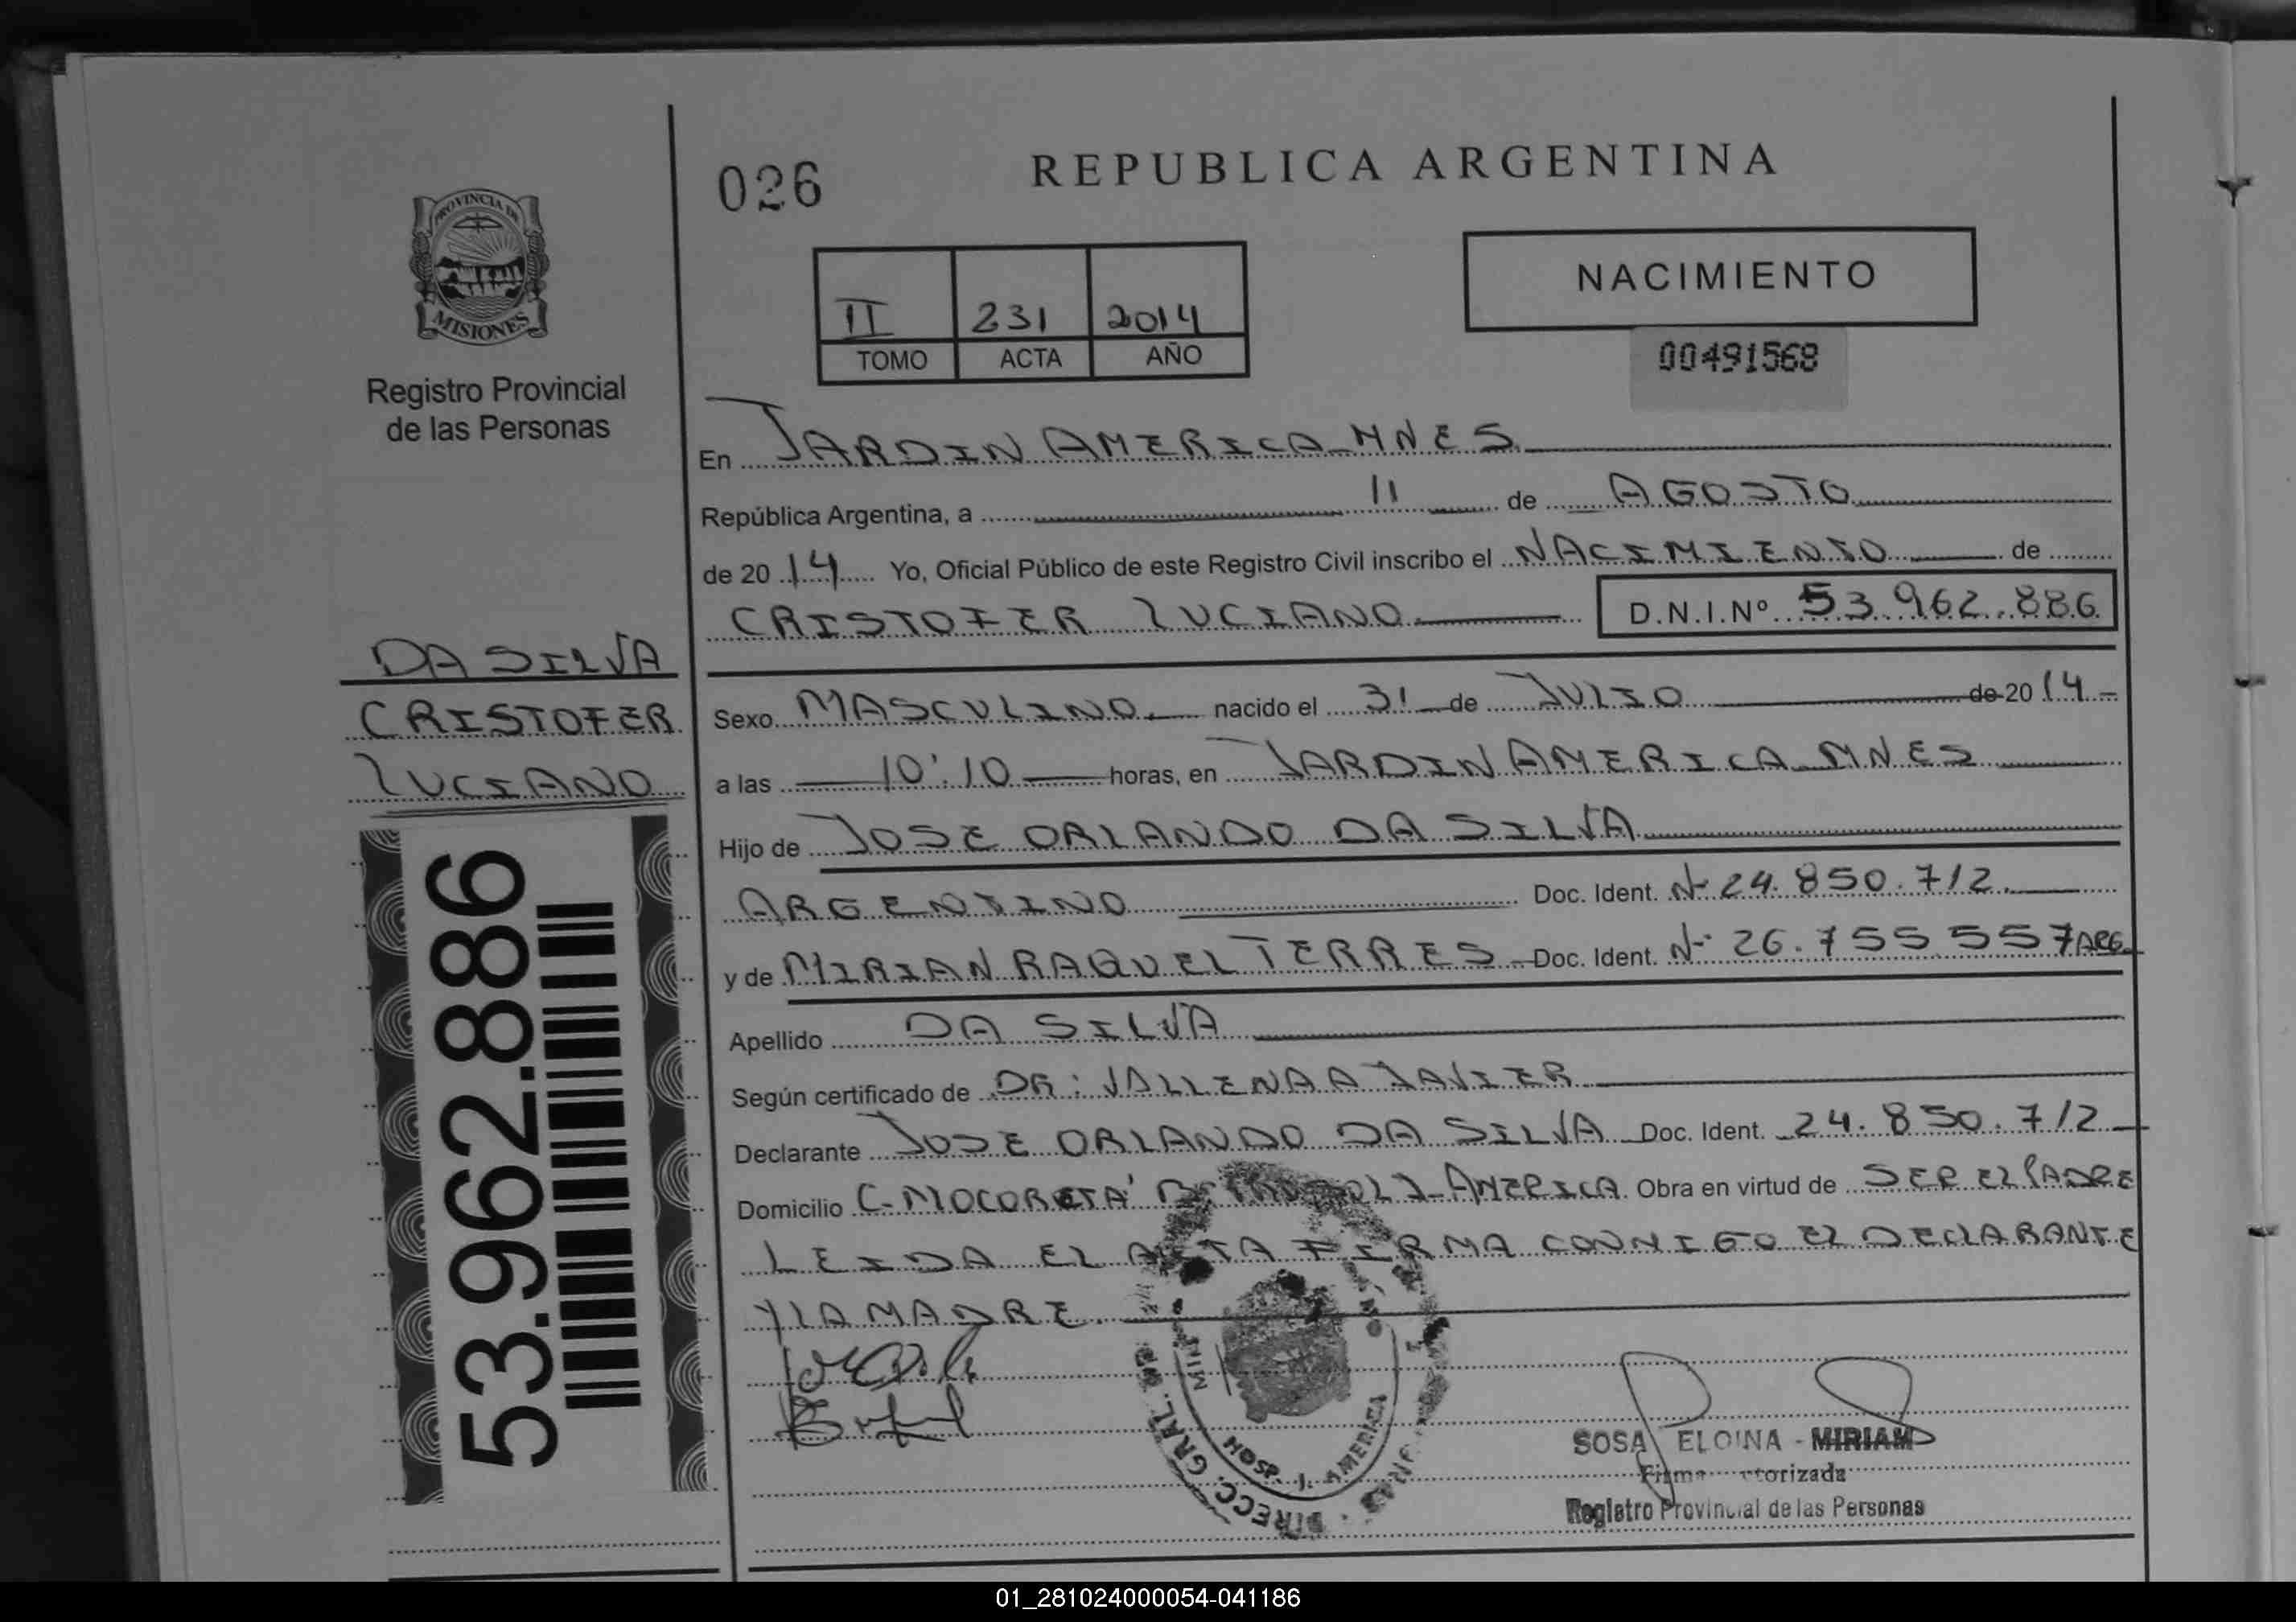 026
REPUBLICA ARGENTINA
PROVINCIA DE
MISIONES
Registro Provincial
de las Personas
II 231 2014
TOMO ACTA AÑO
NACIMIENTO
00491568
En JARDIN AMERICA MNES
República Argentina, a 11 de AGOSTO
de 2014 Yo, Oficial Público de este Registro Civil inscribo el NACIMIENTO de
CRISTOFER LUCIANO D.N.I.Nº 53.962.886
DA SILVA
CRISTOFER
LUCIANO
53.962.886
Sexo MASCULINO nacido el 31 de JULIO de 2014
a las 10:10 horas, en JARDIN AMERICA MNES
Hijo de JOSE ORLANDO DA SILVA
ARGENTINO Doc. Ident. Nº 24.850.712
y de MIRIAN RAQUEL TERRES Doc. Ident. Nº 26.755.557 ARG.
Apellido DA SILVA
Según certificado de DR: JAVIER
Declarante JOSE ORLANDO DA SILVA Doc. Ident. 24.850.712
Domicilio C- MOCORETA' AMERICA Obra en virtud de SER EL PADRE
LEIDA EL ACTA FIRMA CONMIGO EL DECLARANTE
Y LA MADRE.
DIRECC. GRAL.
HOSP. J. AMERICA
SOSA ELOINA - MIRIAM
Registro Provincial de las Personas
01_281024000054-041186